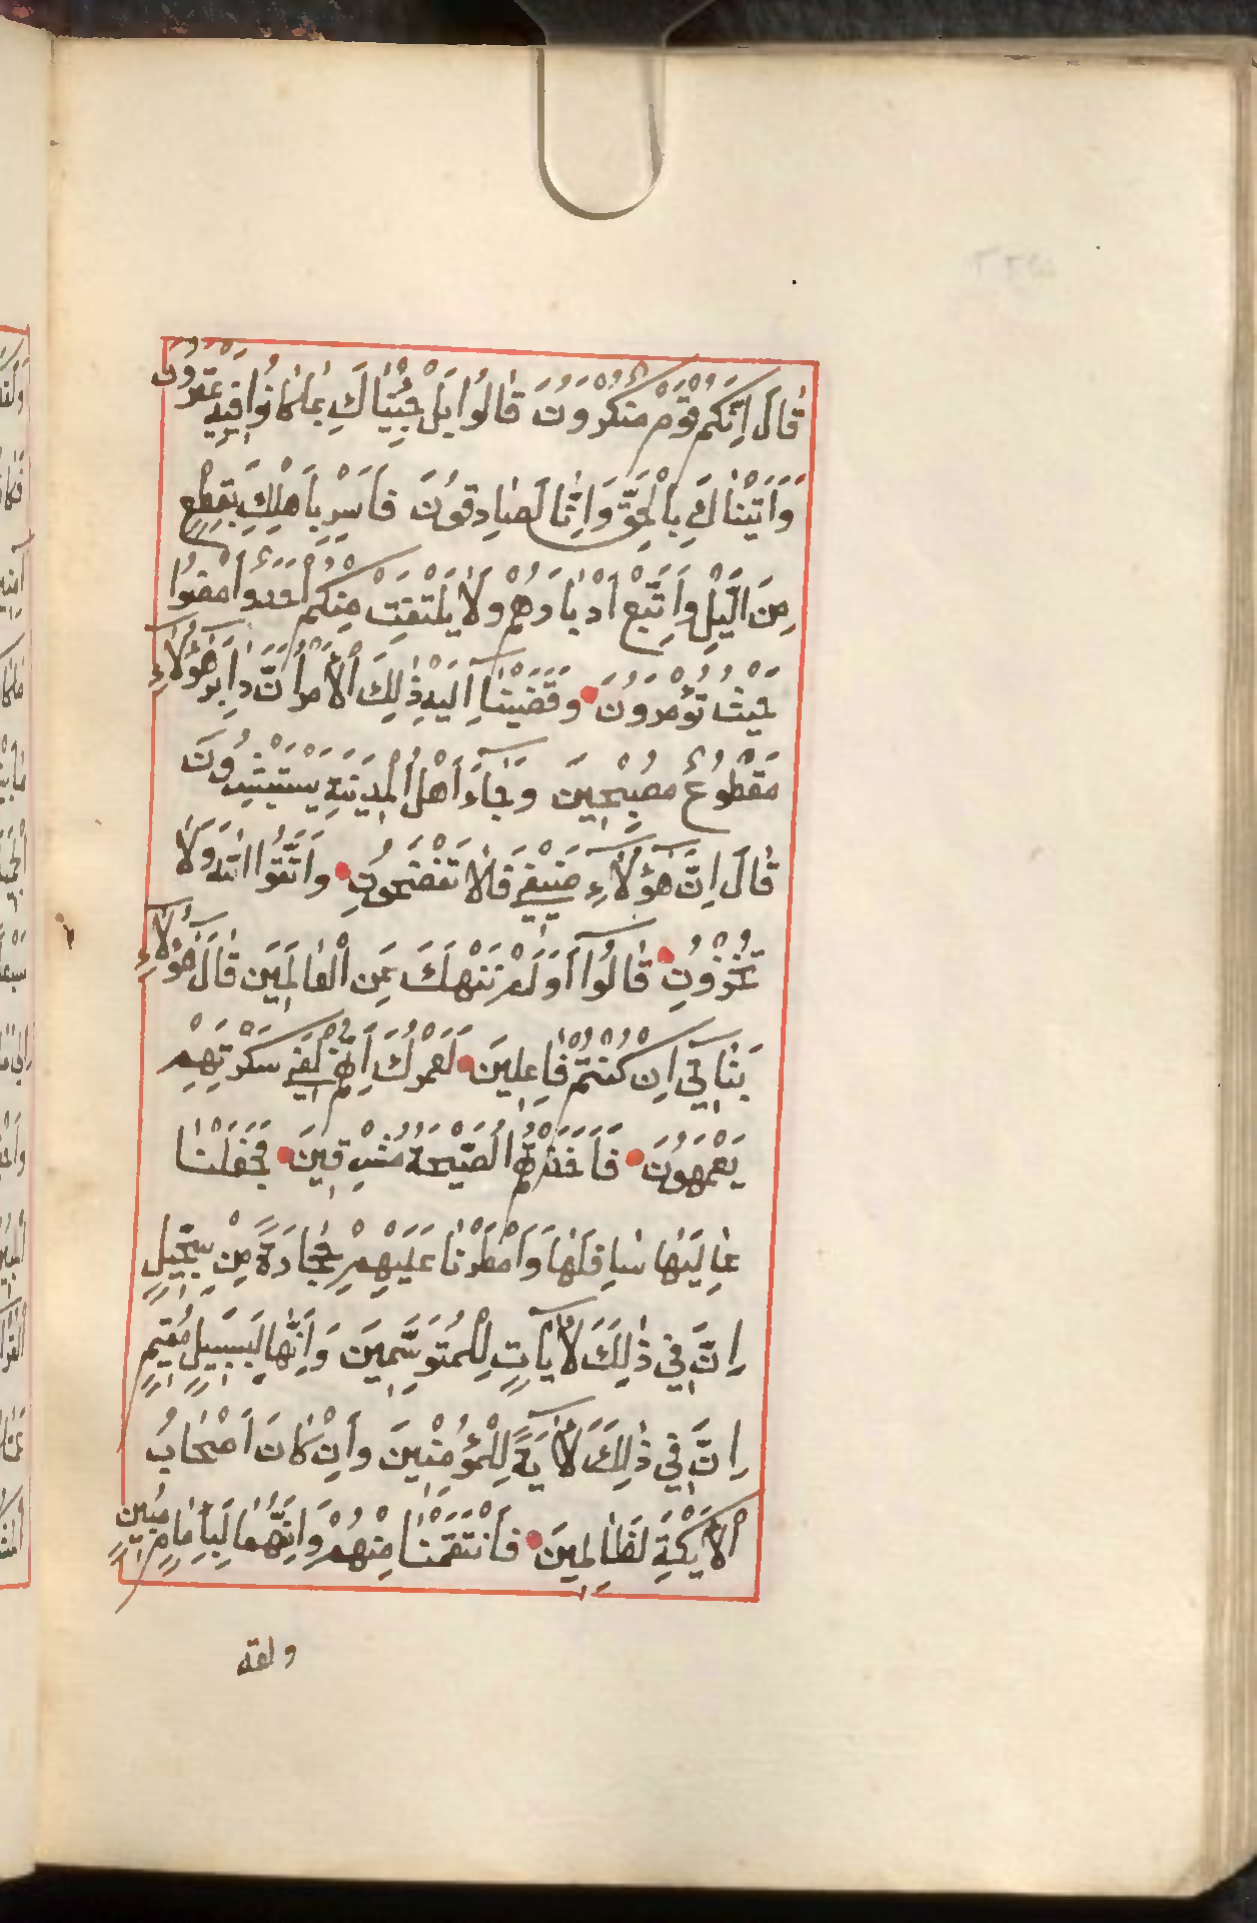 قَالَ اِنَّكُمْ قَوْمٌ مُنْكَرُوْنَ قَالُوْا بَلْ جِئْنَاكَ بِمَا كَانُوْا فِيْهِ يَمْتَرُوْنَ
وَاَتَيْنَاكَ بِالْحَقِّ وَاِنَّا لَصَادِقُوْنَ فَاَسْرِ بِاَهْلِكَ بِقِطْعٍ
مِنَ الَّيْلِ وَاتَّبِعْ اَدْبَارَهُمْ وَلَا يَلْتَفِتْ مِنْكُمْ اَحَدٌ وَامْضُوْا
حَيْثُ تُؤْمَرُوْنَ وَقَضَيْنَا اِلَيْهِ ذٰلِكَ الْاَمْرَ اَنَّ دَابِرَ هٰؤُلَاءِ
مَقْطُوْعٌ مُصْبِحِيْنَ وَجَاءَ اَهْلُ الْمَدِيْنَةِ يَسْتَبْشِرُوْنَ
قَالَ اِنَّ هٰؤُلَاءِ ضَيْفِيْ فَلَا تَفْضَحُوْنِ وَاتَّقُوا اللّٰهَ وَلَا
تُخْزُوْنِ قَالُوْا اَوَلَمْ نَنْهَكَ عَنِ الْعَالَمِيْنَ قَالَ هٰؤُلَاءِ
بَنَاتِيْ اِنْ كُنْتُمْ فَاعِلِيْنَ لَعَمْرُكَ اِنَّهُمْ لَفِيْ سَكْرَتِهِمْ
يَعْمَهُوْنَ فَاَخَذَتْهُمُ الصَّيْحَةُ مُشْرِقِيْنَ فَجَعَلْنَا
عَالِيَهَا سَافِلَهَا وَاَمْطَرْنَا عَلَيْهِمْ حِجَارَةً مِنْ سِجِّيْلٍ
اِنَّ فِيْ ذٰلِكَ لَاٰيَاتٍ لِلْمُتَوَسِّمِيْنَ وَاِنَّهَا لَبِسَبِيْلٍ مُقِيْمٍ
اِنَّ فِيْ ذٰلِكَ لَاٰيَةً لِلْمُؤْمِنِيْنَ وَاِنْ كَانَ اَصْحَابُ
الْاَيْكَةِ لَظَالِمِيْنَ فَانْتَقَمْنَا مِنْهُمْ وَاِنَّهُمَا لَبِاِمَامٍ مُبِيْنٍ
ولقد